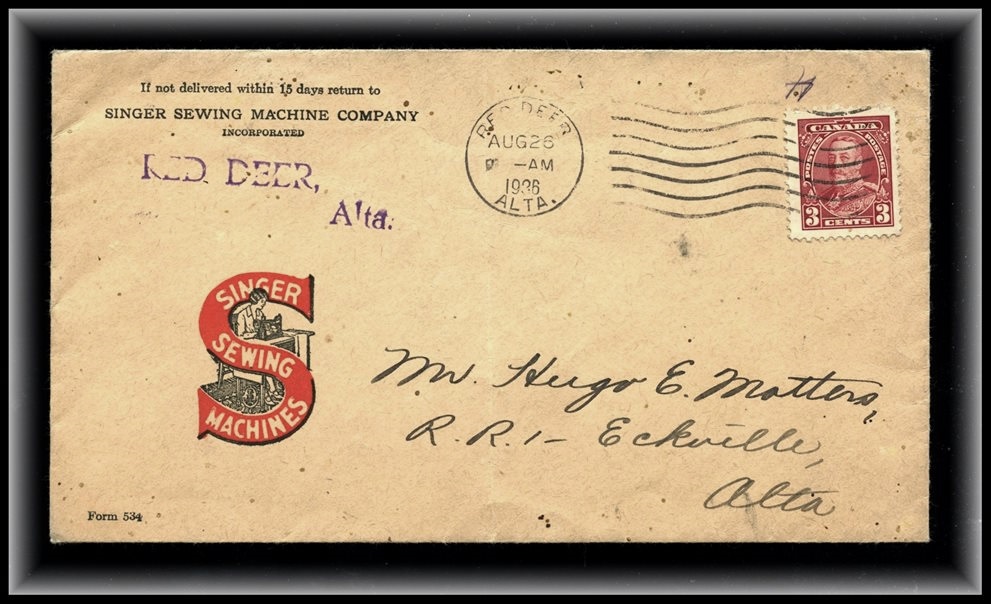 If not delivered within 15 days return to
SINGER SEWING MACHINE COMPANY
INCORPORATED
RED DEER,
Alta.
RED DEER
AUG 26
-AM
1936
ALTA.
CANADA
POSTES POSTAGE
3 CENTS 3
SINGER
SEWING
MACHINES
Mr. Hugo E. Matters,
R.R.1- Eckville,
Alta
Form 534